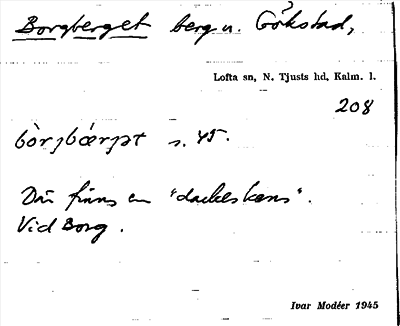 Borgberget berg u. Gökstad,
Lofta sn, N. Tjusts hd, Kalm. l.
208
bòrjbǽrjət s. 45.
Där finns en "dackeskans".
Vid Borg.
Ivar Modéer 1945